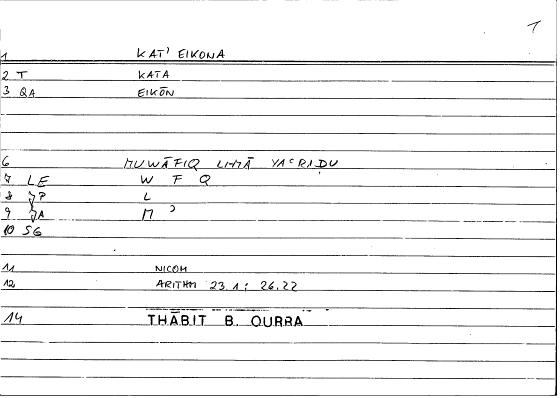 1
1 KAT' EIKONA
2 T KATA
3 QA EIKŌN
6 MUWĀFIQ LIMĀ YAʿRIḌU
7 LE W F Q
8 JP L
9 JA M ʾ
10 SG
11 NICOM
12 ARITHM 23.1; 26.22
14 THĀBIT B. QURRA